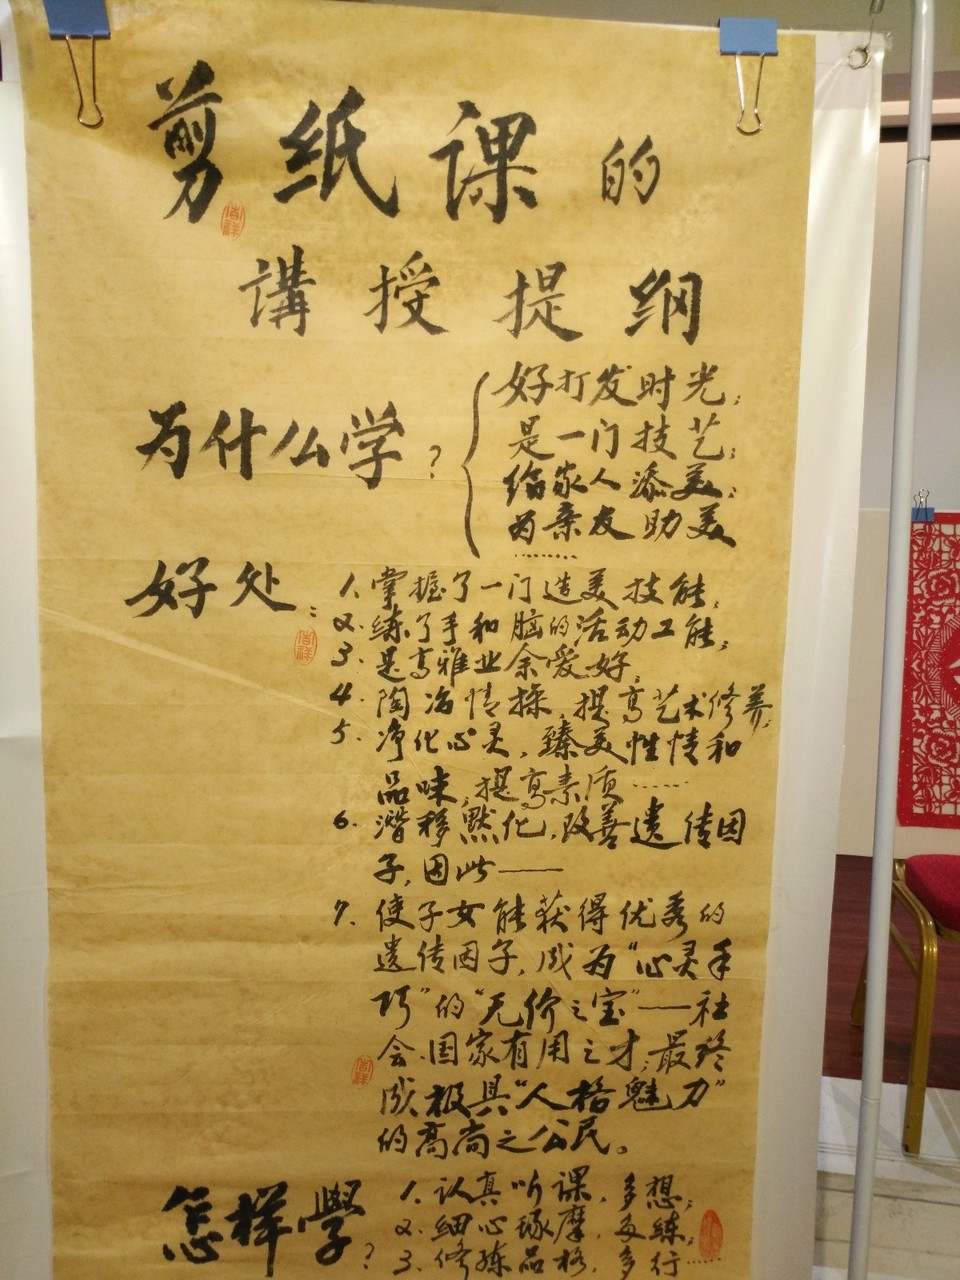 剪纸课的
講授提纲
为什么学？
好打发时光；
是一门技艺；
给家人添美；
为亲友助美
………
好处：
1. 掌握了一门造美技能；
2. 练了手和脑的活动工能；
3. 是高雅业余爱好；
4. 陶冶情操，提高艺术修养；
5. 净化心灵，臻美性情和
品味，提高素质……
6. 潜移黙化，改善遗传因
子，因此——
7. 使子女能获得优秀的
遗传因子，成为“心灵手
巧”的“无价之宝”——社
会、国家有用之才；最终
成极具“人格魅力”
的高尚之公民。
怎样學？
1. 认真听课，多想；
2. 细心琢摩，多练；
3. 修炼品格，多行……
吉祥
吉祥
吉祥